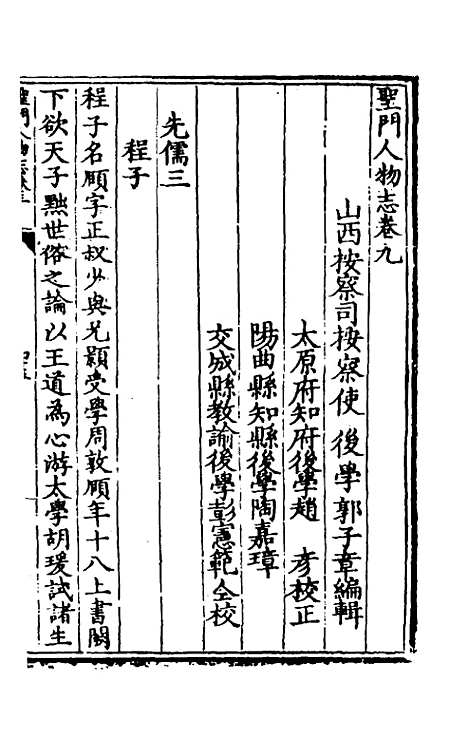 聖門人物志卷九
山西按察司按察使後學郭子章編輯
太原府知府後學趙彥校正
陽曲縣知縣後學陶嘉璋
交城縣教諭後學彭憲範仝校
先儒三
程子
程子名頤字正叔少與兄顥受學周敦頤年十八上書闕
下欲天子黜世俗之論以王道為心游太學胡瑗試諸生
聖門人物志